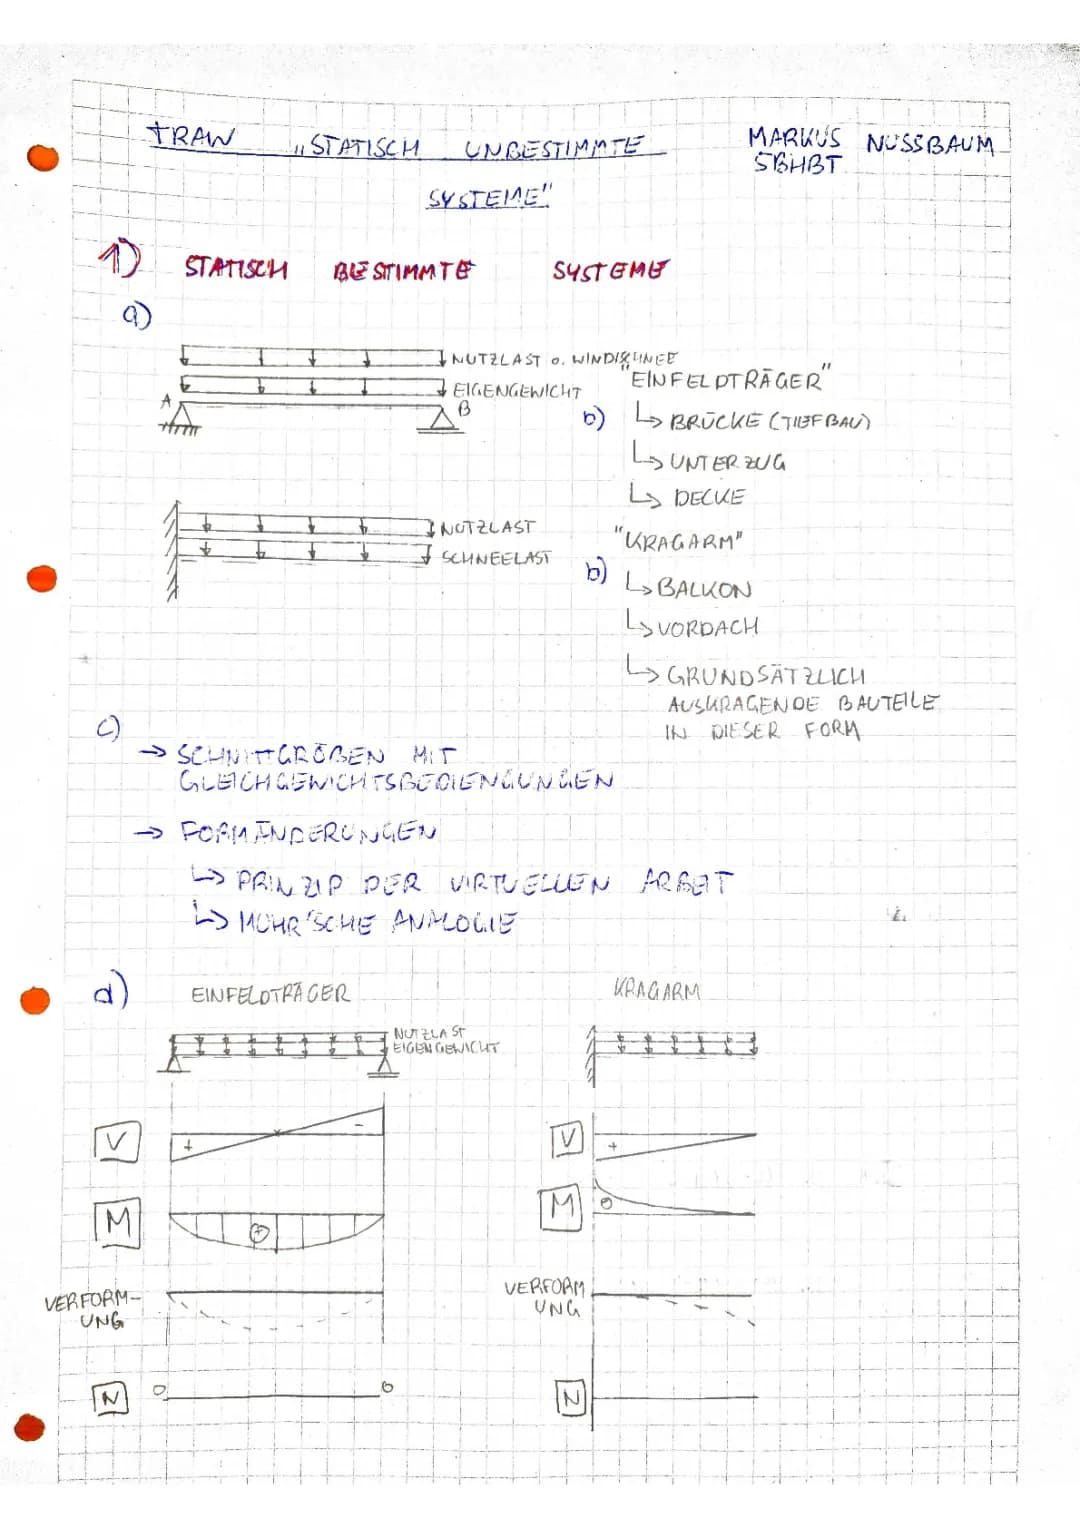 TRAW „STATISCH UNBESTIMMTE MARKUS NUSSBAUM
SYSTEME" 5BHBT
1) STATISCH BESTIMMTE SYSTEME
a)
NUTZLAST o. WIND/SCHNEE
EIGENGEWICHT
A
B
"EINFELDTRÄGER"
b) ↳ BRÜCKE (TIEFBAU)
↳ UNTERZUG
↳ DECKE
NUTZLAST
SCHNEELAST
"KRAGARM"
b) ↳ BALKON
↳ VORDACH
↳ GRUNDSÄTZLICH
AUSKRAGENDE BAUTEILE
IN DIESER FORM
c)
→ SCHNITTGRÖßEN MIT
GLEICHGEWICHTSBEDIENGUNGEN
→ FORMÄNDERUNGEN
↳ PRINZIP DER VIRTUELLEN ARBEIT
↳ MOHR'SCHE ANALOGIE
d) EINFELDTRÄGER KRAGARM
NUTZLAST
EIGENGEWICHT
V + - V +
M + M ⊖
VERFORM-
UNG
VERFORM
UNG
N 0 0 N